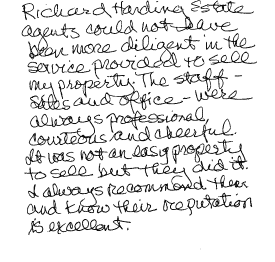 Richard Harding Estate
agents could not have
been more diligent in the
service provided to sell
my property. The staff -
sales and office - were
always professional,
courteous and cheerful.
It was not an easy property
to sell but they did it.
I always recommend them
and know their reputation
is excellent.